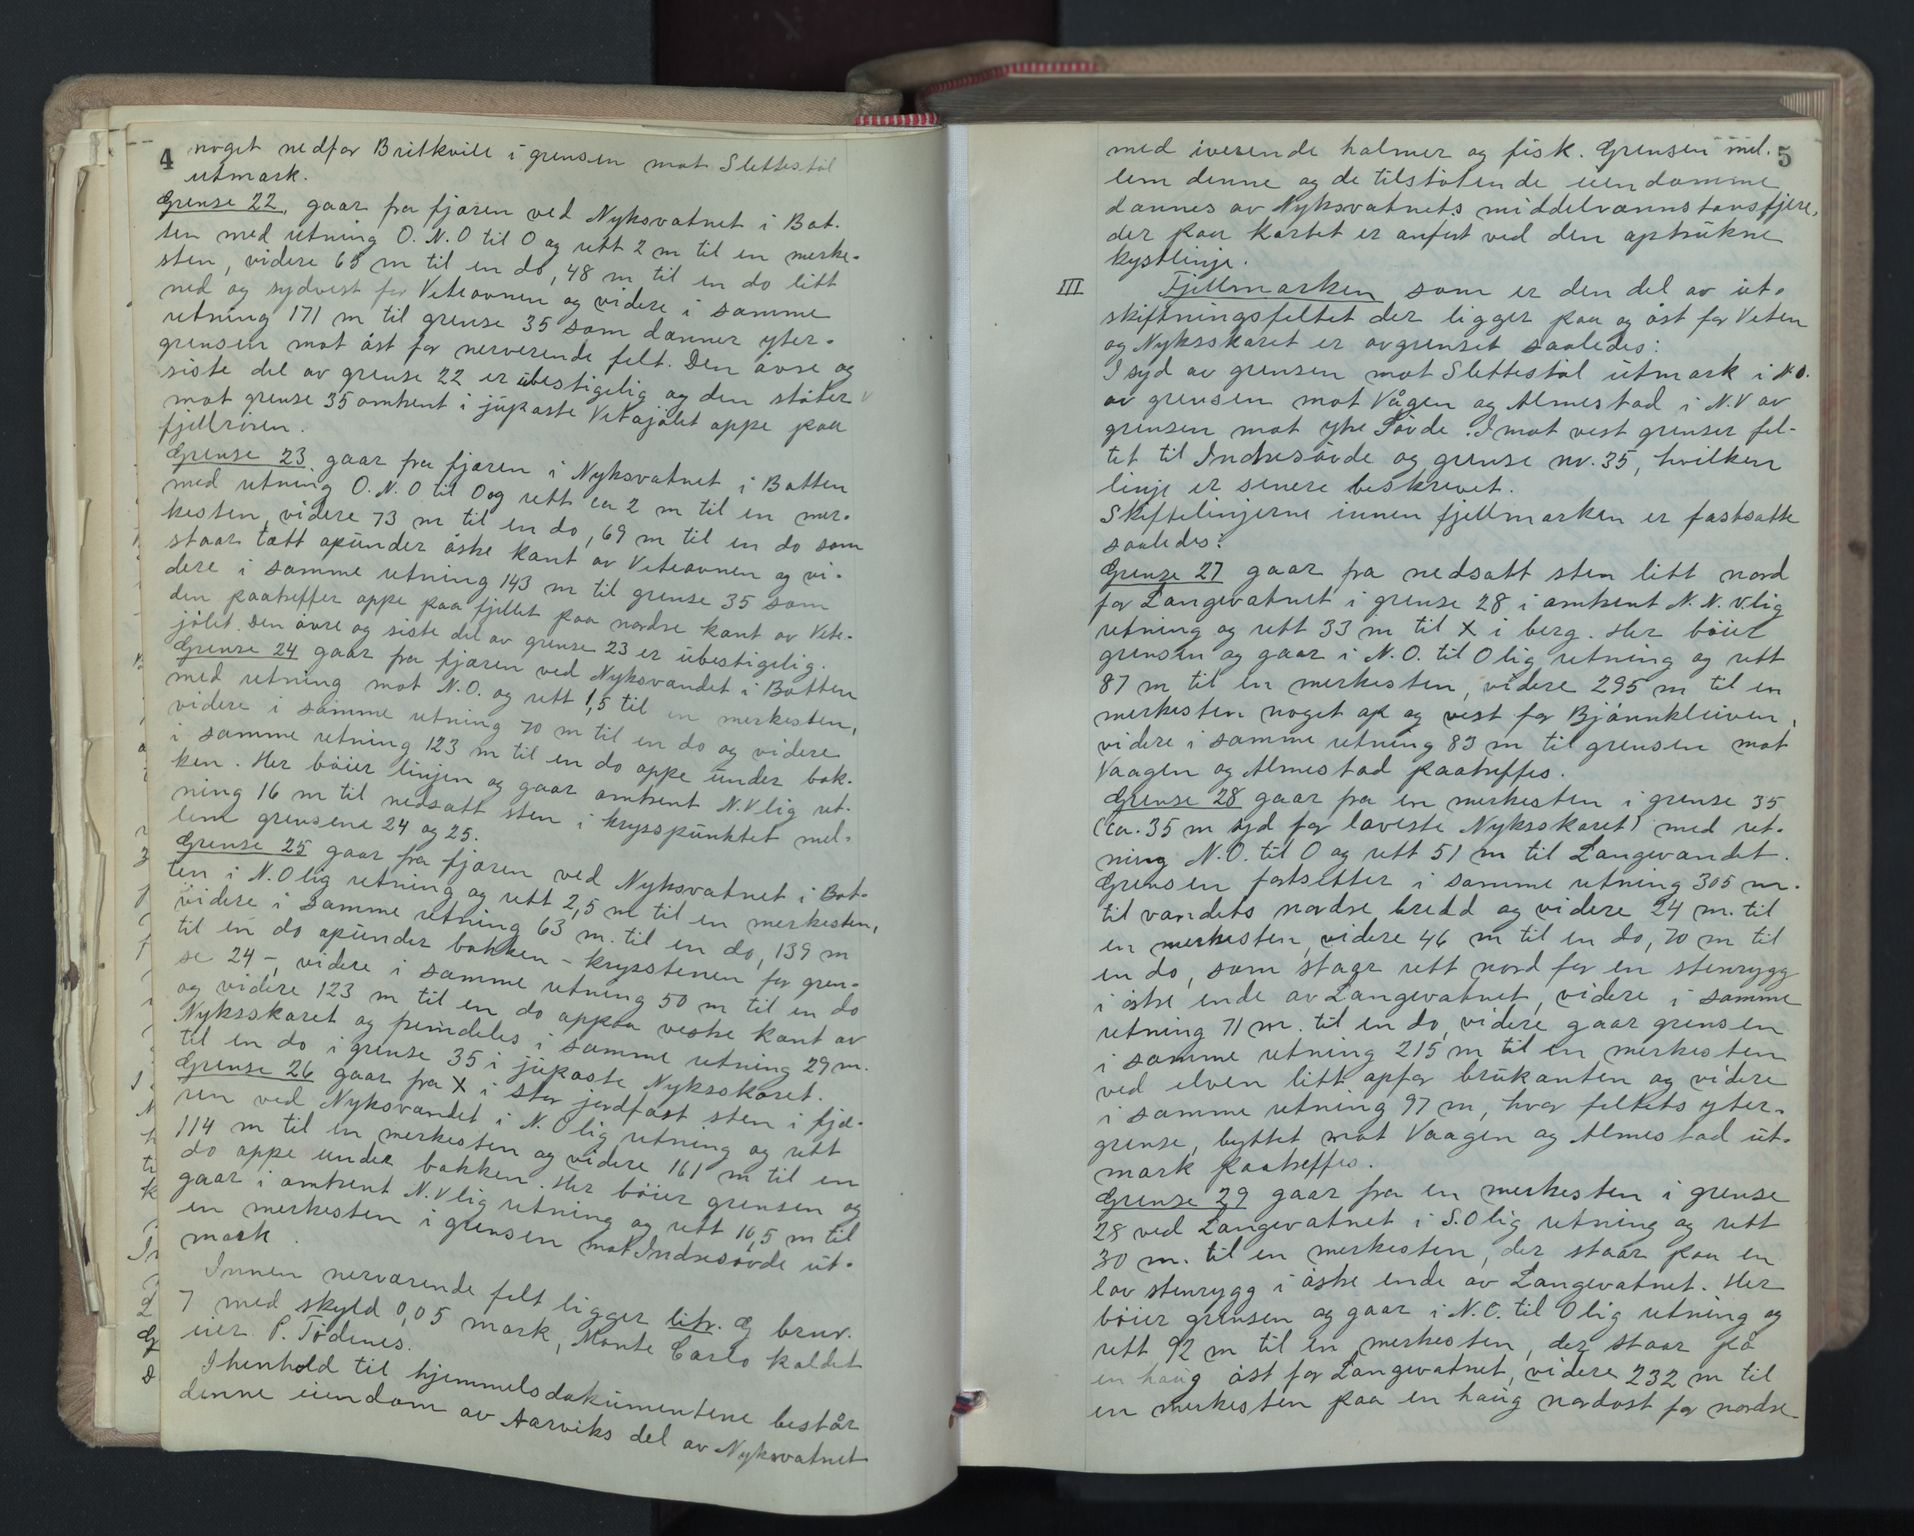 4
noget nedfor Britkvile i grensen mot Slettestøl
utmark.
Grense 22, gaar fra fjæren ved Nyksvatnet i Bot-
ten med retning O.N.O til O og rett 2 m til en merke-
sten, videre 65 m til en do, 48 m til en do litt
ned og sydvest for Veteovnen og videre i samme
retning 171 m til grense 35 som danner yter-
grensen mot øst for nerverende felt. Den øvre og
siste del av grense 22 er ubestigelig og den støter
mot grense 35 omtrent i jupaste Vetajølet oppe paa
fjellrösen.
Grense 23 gaar fra fjæren i Nyksvatnet i Botten
med retning O.N.O til O og rett ca 2 m til en mer-
kesten, videre 73 m til en do, 69 m til en do som
staar tætt opunder østre kant av Veteovnen og vi-
dere i samme retning 143 m til grense 35 som
den paatreffer oppe paa fjellet paa nordre kant av Vete-
jølet. Den øvre og siste del av grense 23 er ubestigelig.
Grense 24 gaar fra fjæren ved Nyksvandet i Botten
med retning mot N.O. og rett 1,5 til en merkesten,
videre i samme retning 70 m til en do og videre
i samme retning 123 m til en do oppe under bak-
ken. Her bøier linjen og gaar omtrent N.Vlig ret-
ning 16 m til nedsatt sten i krysspunktet mel-
lem grensene 24 og 25.
Grense 25 gaar fra fjæren ved Nyksvatnet i Bot-
ten i N.Olig retning og rett 2,5 m til en merkesten,
videre i samme retning 63 m. til en do, 139 m
til en do opunder bakken - krysstenen for gren-
se 24 -, videre i samme retning 50 m til en do
og videre 123 m til en do oppaa vestre kant av
Nyksskaret og fremdeles i samme retning 29 m.
til en do i grense 35 i jupaste Nyksskaret.
Grense 26 gaar fra X i stor jordfast sten i fjæ-
ren ved Nyksvandet i N.Olig retning og rett
114 m til en merkesten og videre 161 m til en
do oppe under bakken. Her bøier grensen og
gaar i omtrent N.Vlig retning og rett 16,5 m til
en merkesten i grensen mot Indresøvde ut-
mark.
Innen nerværende felt ligger litr. Og bruv.
7 med skyld 0,05 mark, Monte Carlo kaldet
eier P. Tødenes.
I henhold til hjemmelsdokumentene består
denne eiendom av Aarviks del av Nyksvatnet
5
med iverende holmer og fisk. Grensen mel-
lem denne og de tilstøtende eiendomme
dannes av Nyksvatnets middelvannstansfjere,
der paa kartet er anført ved den optrukne
kystlinje.
III Fjellmarken som er den del av ut-
skiftningsfeltet der ligger paa og øst for Veten
og Nyksskaret er avgrenset saaledes:
I syd av grensen mot Slettestøl utmark i N.O.
av grensen mot Vågen og Almestad i N.V av
grensen mot ytre Søvde. I mot vest grenser fel-
tet til Indresøvde og grense nr. 35, hvilken
linje er senere beskrevet.
Skiftelinjerne innen fjellmarken er fastsatte
saaledes:
Grense 27 gaar fra nedsatt sten litt nord
for Langevatnet i grense 28 i omtrent N.N.V.lig
retning og rett 33 m til X i berg. Her bøier
grensen og gaar i N.O. til Olig retning og rett
87 m til en merkesten, videre 295 m til en
merkesten noget op og vest for Bjønnkleiven,
videre i samme retning 83 m til grensen mot
Vaagen og Almestad paatreffes.
Grense 28 gaar fra en merkesten i grense 35
(ca. 35 m syd for laveste Nyksskaret) med ret-
ning N.O. til O og rett 51 m til Langevandet.
Grensen fortsetter i samme retning 305 m.
til vandets nordre bredd og videre 24 m. til
en merkesten, videre 46 m til en do, 70 m til
en do, som staar rett nord for en stenrygg
i østre ende av Langevatnet, videre i samme
retning 71 m. til en do, videre gaar grensen
i samme retning 215 m til en merkesten
ved elven litt opfor brukanten og videre
i samme retning 97 m, hvor feltets yter-
grense, byttet mot Vaagen og Almestad ut-
mark paatreffes.
Grense 29 gaar fra en merkesten i grense
28 ved Langevatnet i S.Olig retning og rett
30 m. til en merkesten, der staar paa en
lav stenrygg i østre ende av Langevatnet. Her
bøier grensen og gaar i N.O. til Olig retning og
rett 92 m til en merkesten, der staar på
en haug øst for Langevatnet, videre 232 m til
en merkesten paa en haug nordost for nordre